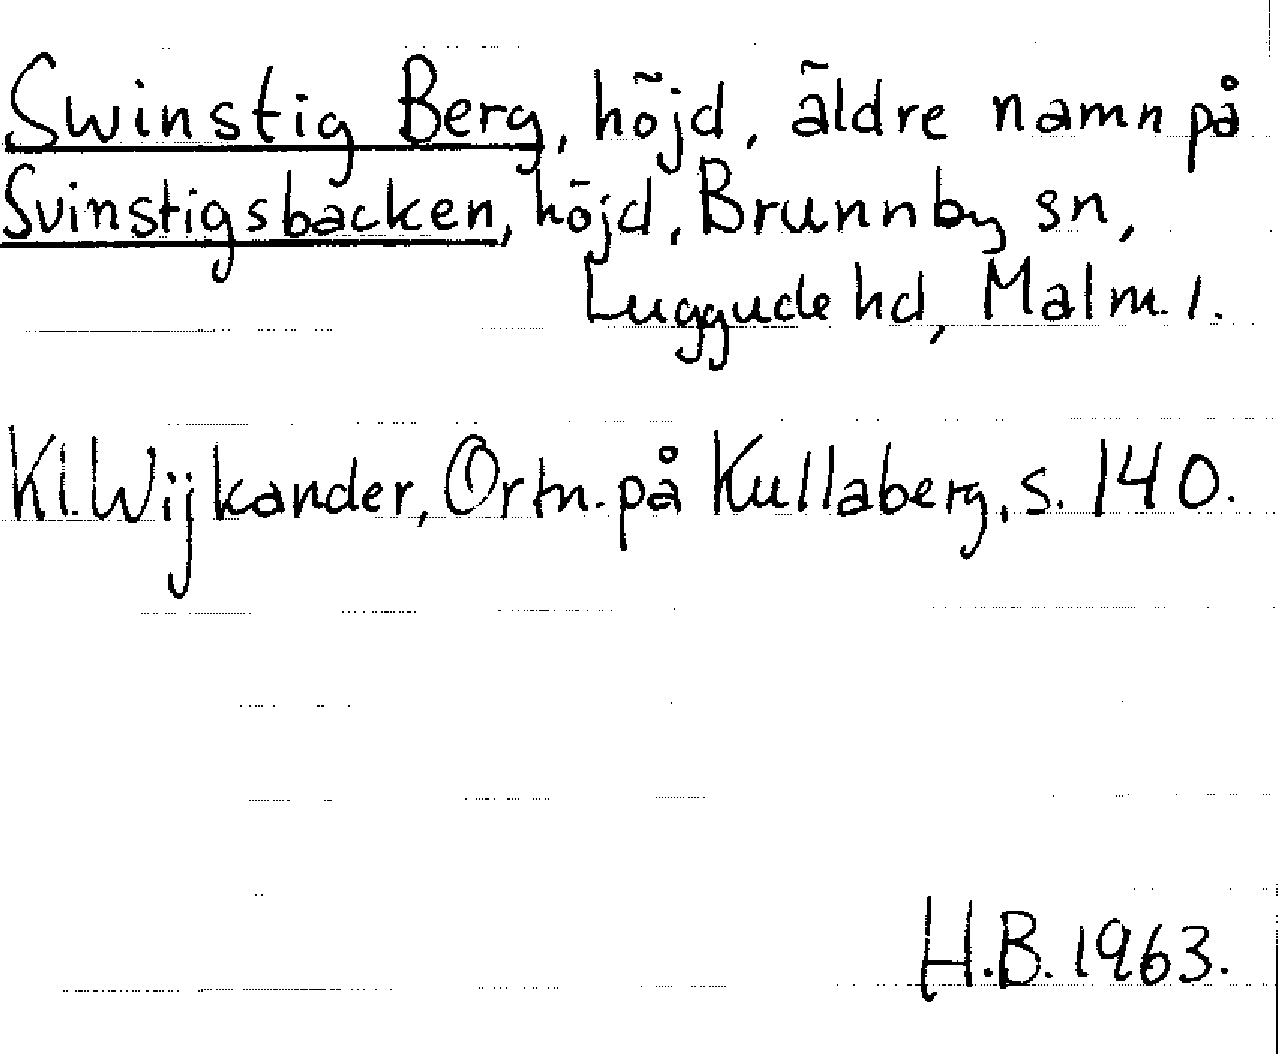 Swinstig Berg, höjd, äldre namn på
Svinstigsbacken, höjd, Brunnby sn,
Luggude hd, Malm. l.
Kl. Wijkander, Ortn. på Kullaberg, s. 140.
H.B. 1963.